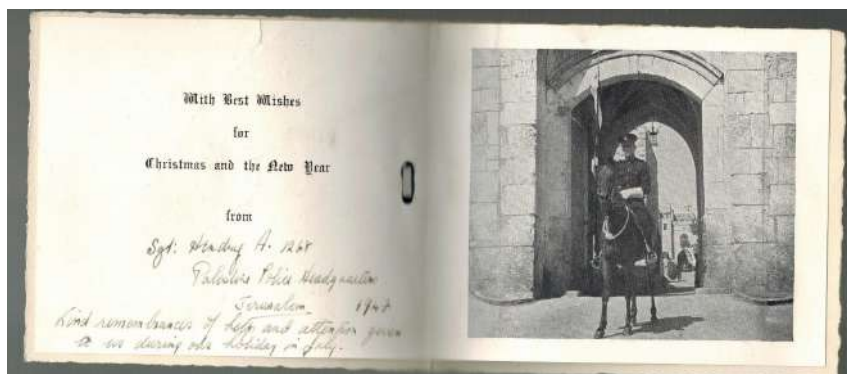 With Best Wishes
for
Christmas and the New Year
from
Sgt: A. 1268
Palestine Police Headquarters
Jerusalem 1947
Kind remembrances of help and attention given
to us during our holiday in July.